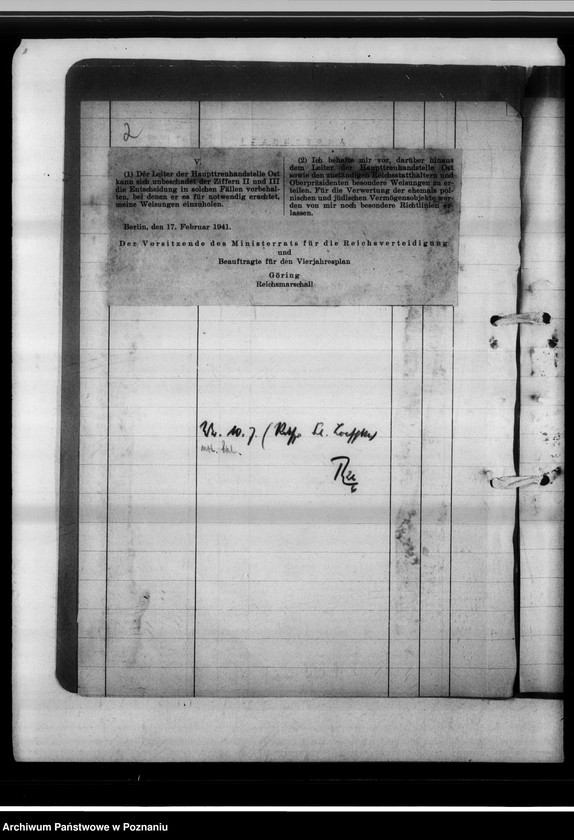 2
V.
(1) Der Leiter der Haupttreuhandstelle Ost
kann sich unbeschadet der Ziffern II und III
die Entscheidung in solchen Fällen vorbehal-
ten, bei denen er es für notwendig erachtet,
meine Weisungen einzuholen.
(2) Ich behalte mir vor, darüber hinaus
dem Leiter der Haupttreuhandstelle Ost
sowie den zuständigen Reichsstatthaltern und
Oberpräsidenten besondere Weisungen zu er-
teilen. Für die Verwertung der ehemals pol-
nischen und jüdischen Vermögensobjekte wer-
den von mir noch besondere Richtlinien er-
lassen.
Berlin, den 17. Februar 1941.
Der Vorsitzende des Ministerrats für die Reichsverteidigung
und
Beauftragte für den Vierjahresplan
Göring
Reichsmarschall
Archiwum Państwowe w Poznaniu